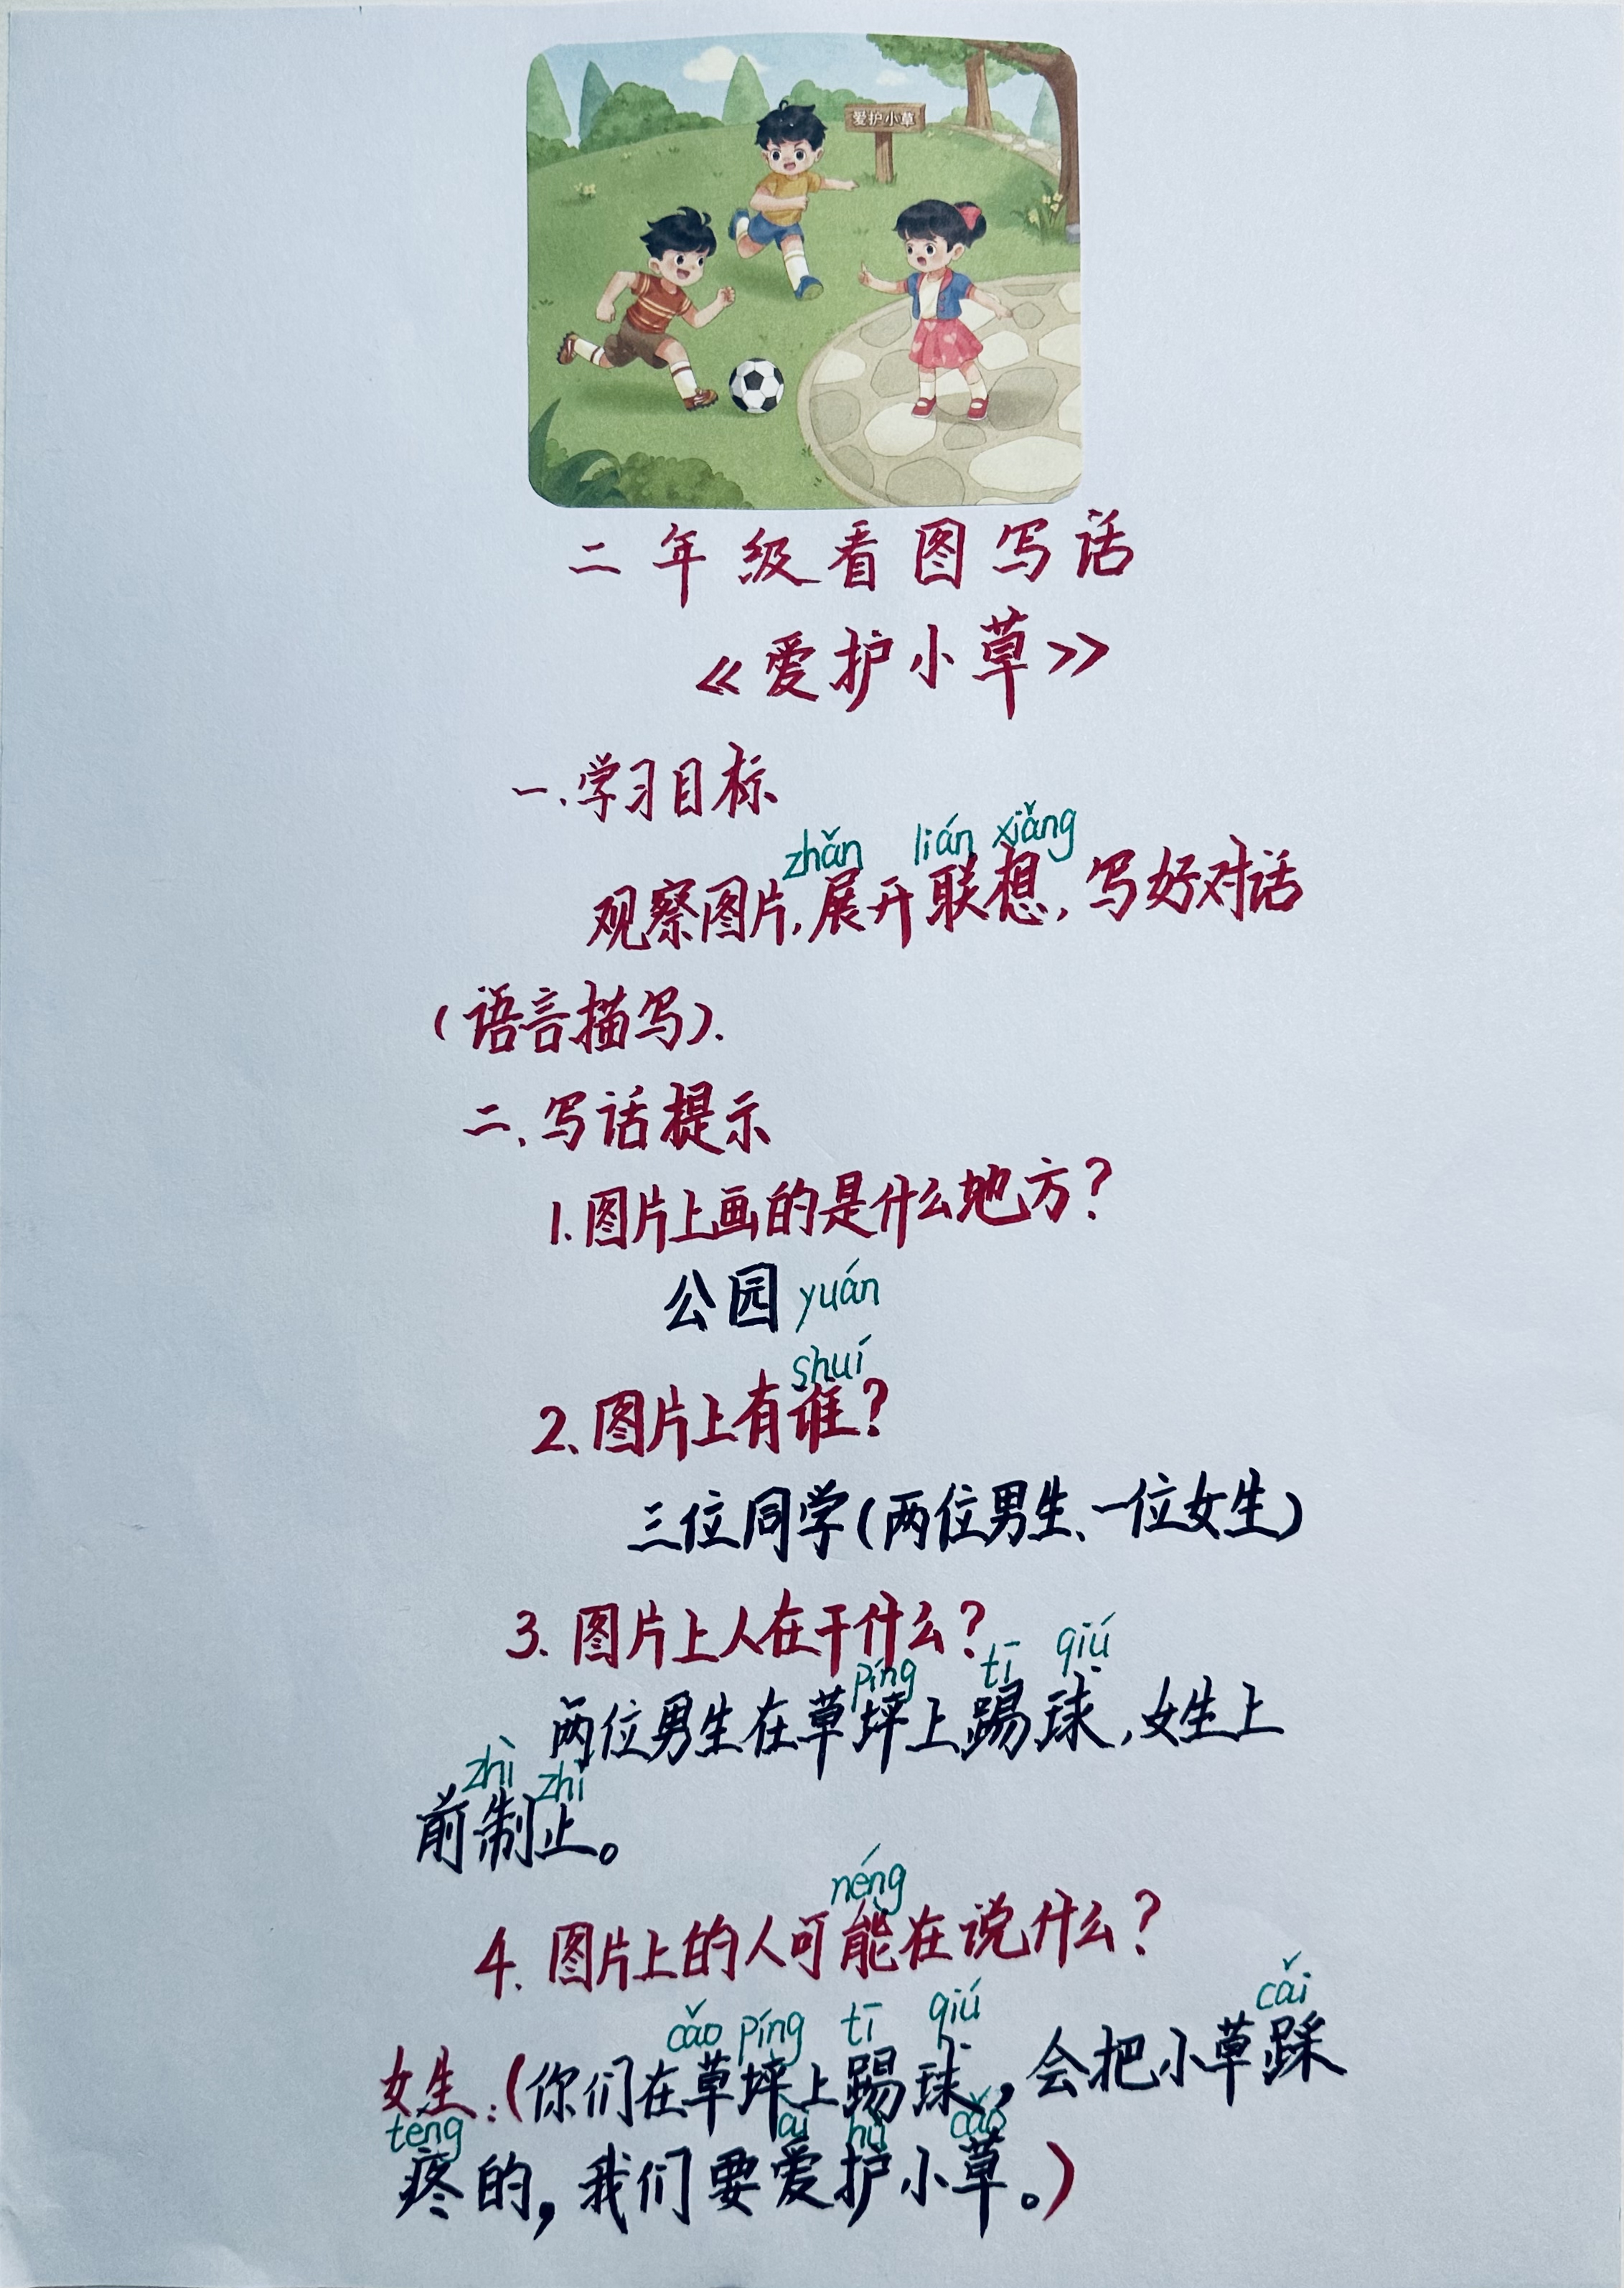 爱护小草
二年级看图写话
《爱护小草》
一.学习目标
zhǎn lián xiǎng
观察图片,展开联想,写好对话
(语言描写).
二、写话提示
1.图片上画的是什么地方?
公园 yuán
shuí
2、图片上有谁?
三位同学(两位男生、一位女生)
3. 图片上人在干什么?
píng tī qiú
两位男生在草坪上踢球,女生上
zhì zhǐ
前制止。
néng
4. 图片上的人可能在说什么?
cǎo píng tī qiú cǎi
女生:(你们在草坪上踢球,会把小草踩
téng ài hù cǎo
疼的,我们要爱护小草。)